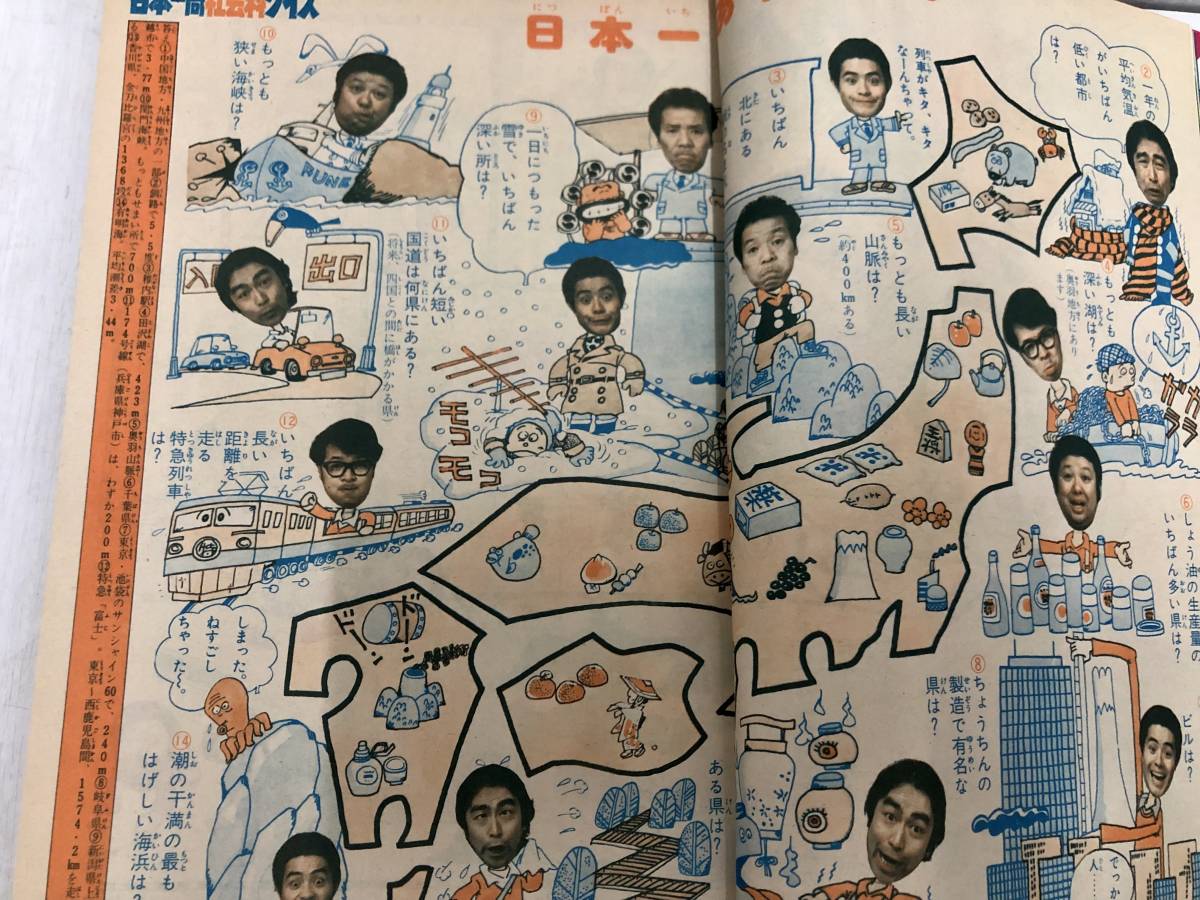 日本一周社会科クイズ
日本一
②一年の
平均気温
がいちばん
低い都市
は？
列車がキタ、キタ
なーんちゃって。
③いちばん
北にある
④もっとも
深い湖は？
（奥羽地方にあり
ます）
ガラガラ
⑤もっとも長い
山脈は？
（約400kmある）
⑥しょう油の生産量の
いちばん多い県は？
ビルは？
でっか
人……
⑧ちょうちんの
製造で有名な
県は？
⑨一日につもった
雪で、いちばん
深い所は？
モコモコ
⑩もっとも
狭い海峡は？
PUNE
⑪いちばん短い
国道は何県にある？
（将来、四国との間に橋がかかる県）
入
出口
⑫いちばん
長い
距離を
走る
特急列車
は？
特
しまった。
ねすごし
ちゃった〜。
ドーン
ドン
茶
ある県は？
⑭潮の干満の最も
はげしい海浜は？
答え①中国地方・九州地方の一部②釧路で5・5度③稚内駅④田沢湖で、423m⑤奥羽山脈⑥千葉県⑦東京・池袋のサンシャイン60で、240m⑧岐阜県⑨新潟県上
越市で3・77m⑩関門海峡。もっともせまい所で700m⑪174号線（兵庫県神戸市）は、わずか200m⑫特急「富士」。東京〜西鹿児島間、1574・2kmを走
る⑬香川県、金刀比羅宮の1368段⑭有明海。平均潮差3・44m。